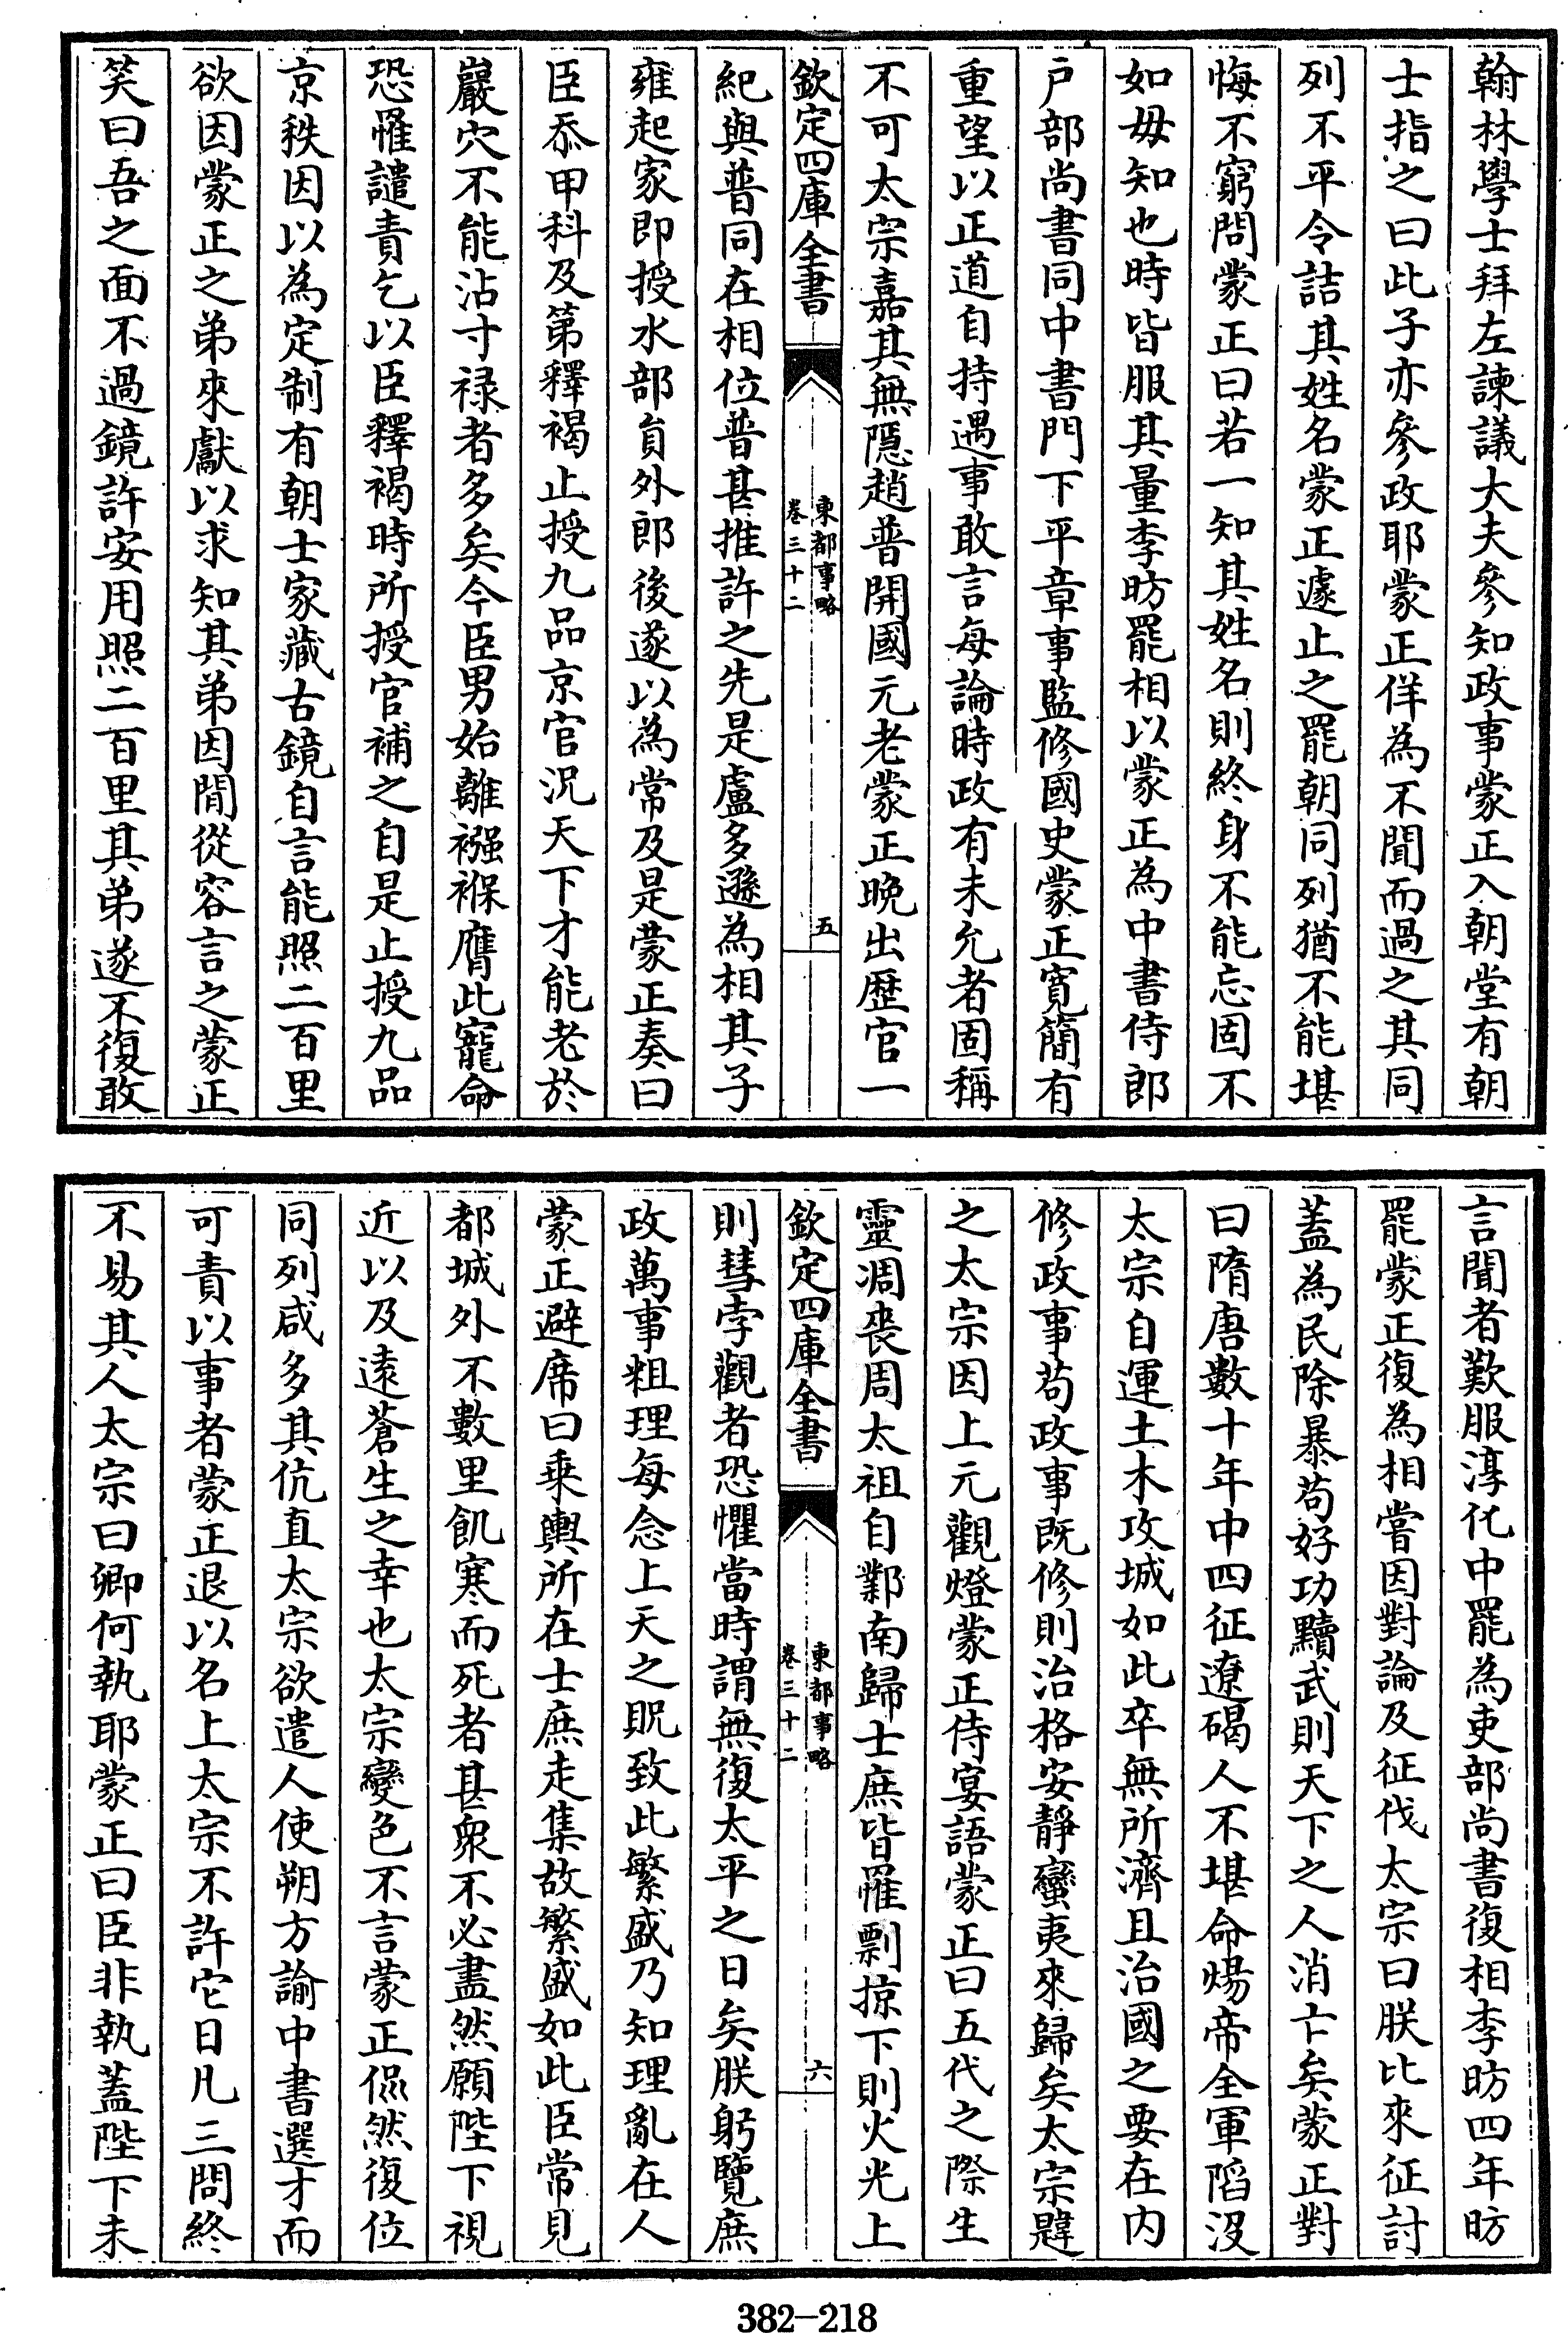 翰林學士拜左諫議大夫參知政事蒙正入朝堂有朝
士指之曰此子亦參政耶蒙正佯為不聞而過之其同
列不平令詰其姓名蒙正遽止之罷朝同列猶不能堪
悔不窮問蒙正曰若一知其姓名則終身不能忘固不
如毋知也時皆服其量李昉罷相以蒙正為中書侍郎
戶部尚書同中書門下平章事監修國史蒙正寬簡有
重望以正道自持遇事敢言每論時政有未允者固稱
不可太宗嘉其無隱趙普開國元老蒙正晚出歷官一
欽定四庫全書
東都事略
卷三十二
五
紀與普同在相位普甚推許之先是盧多遜為相其子
雍起家即授水部員外郎後遂以為常及是蒙正奏曰
臣忝甲科及第釋褐止授九品京官況天下才能老於
巖穴不能沾寸祿者多矣今臣男始離襁褓膺此寵命
恐罹譴責乞以臣釋褐時所授官補之自是止授九品
京秩因以為定制有朝士家藏古鏡自言能照二百里
欲因蒙正之弟來獻以求知其弟因閒從容言之蒙正
笑曰吾之面不過鏡許安用照二百里其弟遂不復敢
言聞者歎服淳化中罷為吏部尚書復相李昉四年昉
罷蒙正復為相嘗因對論及征伐太宗曰朕比來征討
蓋為民除暴苟好功黷武則天下之人消亡矣蒙正對
曰隋唐數十年中四征遼碣人不堪命煬帝全軍陷沒
太宗自運土木攻城如此卒無所濟且治國之要在內
修政事苟政事既修則治格安靜蠻夷來歸矣太宗韙
之太宗因上元觀燈蒙正侍宴語蒙正曰五代之際生
靈凋喪周太祖自鄴南歸士庶皆罹剽掠下則火光上
欽定四庫全書
東都事略
卷三十二
六
則彗孛觀者恐懼當時謂無復太平之日矣朕躬覽庶
政萬事粗理每念上天之貺致此繁盛乃知理亂在人
蒙正避席曰乘輿所在士庶走集故繁盛如此臣常見
都城外不數里飢寒而死者甚衆不必盡然願陛下視
近以及遠蒼生之幸也太宗變色不言蒙正侃然復位
同列咸多其伉直太宗欲遣人使朔方諭中書選才而
可責以事者蒙正退以名上太宗不許它日凡三問終
不易其人太宗曰卿何執耶蒙正曰臣非執蓋陛下未
382-218